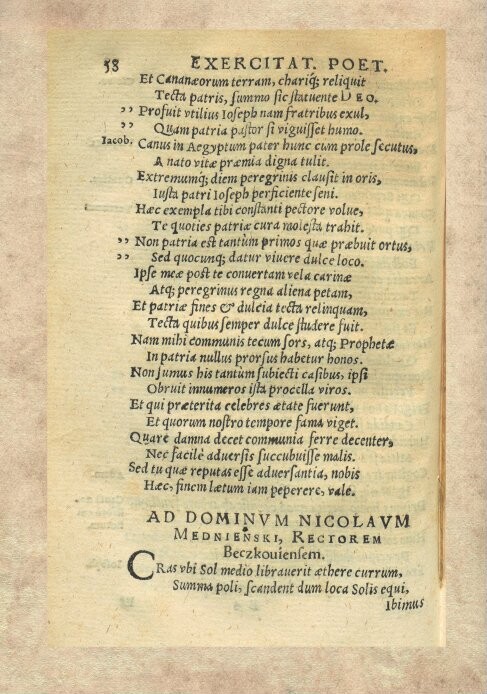 58 EXERCITAT. POET.
Et Cananæorum terram, chariq́; reliquit
Tecta patris, summo sic statuente DEO.
,, Profuit vtilius Ioseph nam fratribus exul,
,, Quam patria pastor si viguisset humo.
Iacob. Canus in Aegyptum pater hunc cum prole secutus,
A nato vitæ præmia digna tulit.
Extremumq́; diem peregrinis clausit in oris,
Iusta patri Ioseph perficiente seni.
Hæc exempla tibi constanti pectore volue,
Te quoties patriæ cura molesta trahit.
,, Non patria est tantùm primos quæ præbuit ortus,
,, Sed quocunq; datur viuere dulce loco.
Ipse meæ post te conuertam vela carinæ
Atq; peregrinus regna aliena petam,
Et patriæ fines & dulcia tecta relinquam,
Tecta quibus semper dulce studere fuit.
Nam mihi communis tecum sors, atq; Prophetæ
In patria nullus prorsus habetur honos.
Non sumus his tantùm subiecti casibus, ipsi
Obruit innumeros ista procella viros.
Et qui præterita celebres ætate fuerunt,
Et quorum nostro tempore fama viget.
Quare damna decet communia ferre decenter,
Nec facilè adversis succubuisse malis.
Sed tu quæ reputas esse adversantia, nobis
Hæc, finem lætum iam peperere, vale.
AD DOMINVM NICOLAVM
MEDNIEŃSKI, RECTOREM
Beczkouiensem.
CRas vbi Sol medio librauerit æthere currum,
Summa poli, scandent dum loca Solis equi,
Ibimus